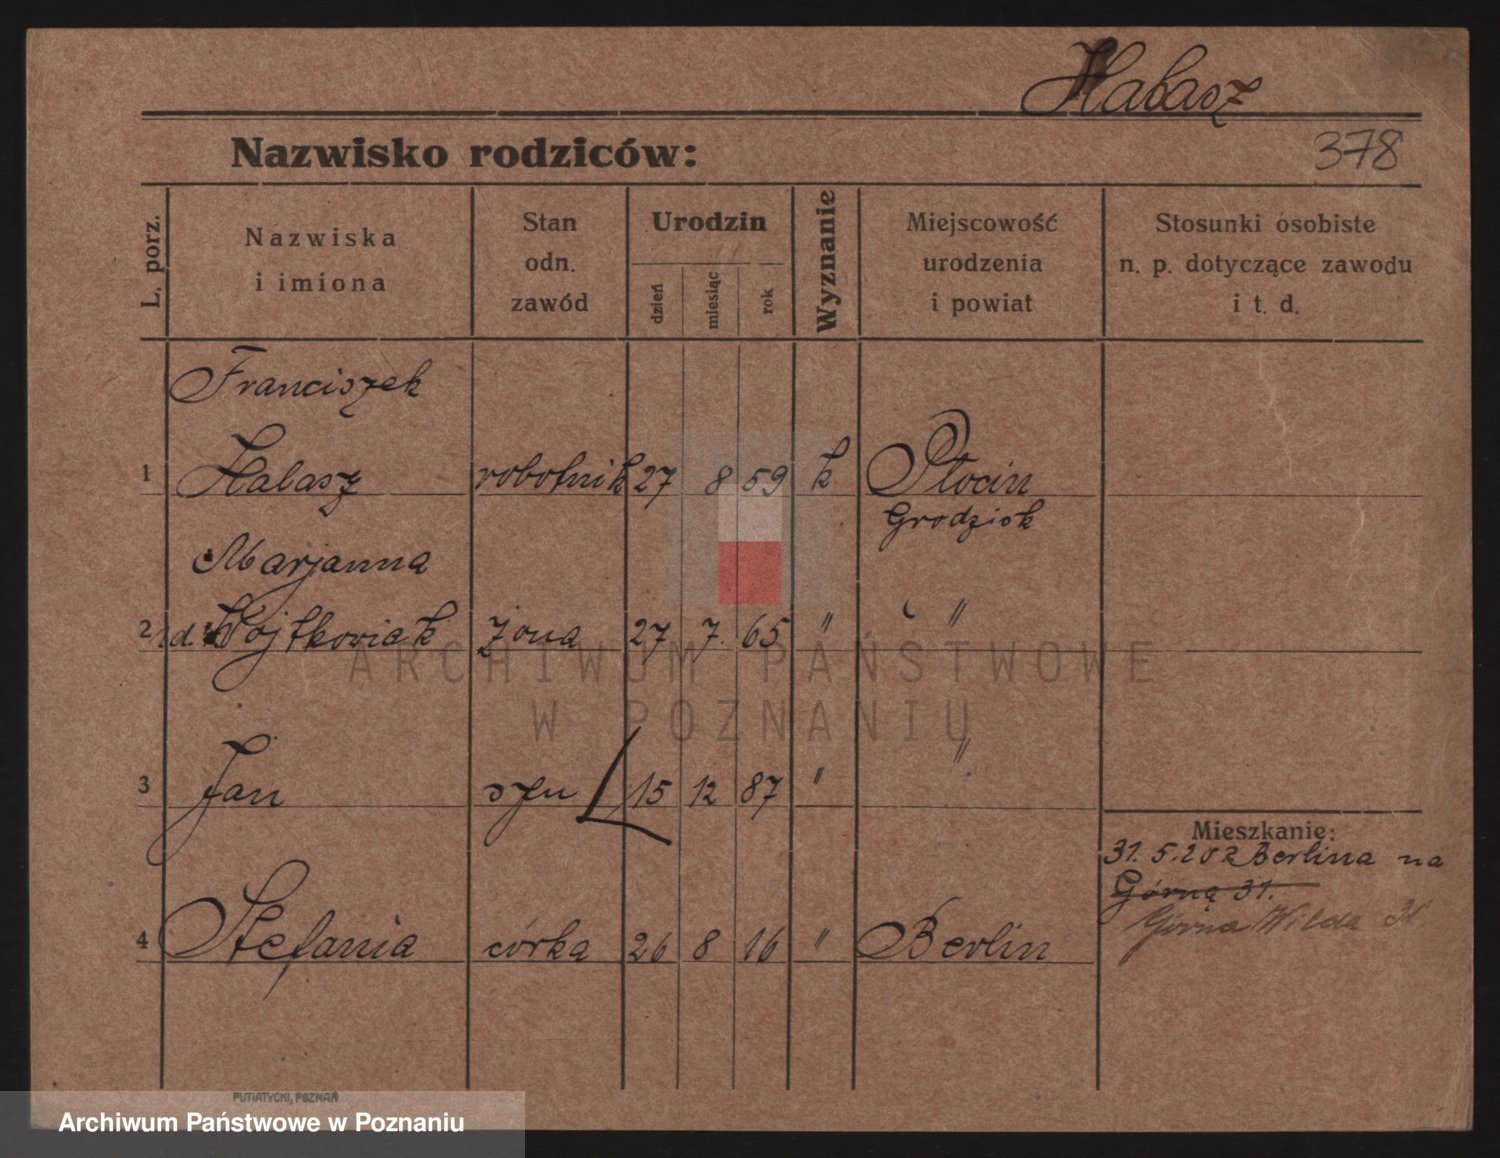 Habasz
Nazwisko rodziców:
378
L. porz.
Nazwiska
i imiona
Stan
odn.
zawód
Urodzin
dzień
miesiąc
rok
Wyznanie
Miejscowość
urodzenia
i powiat
Stosunki osobiste
n. p. dotyczące zawodu
i t. d.
Franciszek
1 Habasz robotnik 27 8 59 k Ptocin
Grodzisk
Marjanna
2 d. Wojtkowiak żona 27 7. 65 " "
3 Jan syn 15 12 87 " "
Mieszkanie:
31. 5. 20 z Berlina na
Górną 31.
Górna Wilda 31.
4 Stefania córka 26 8 16 " Berlin
ARCHIWUM PAŃSTWOWE
W POZNANIU
PUTIATYCKI, POZNAŃ
Archiwum Państwowe w Poznaniu